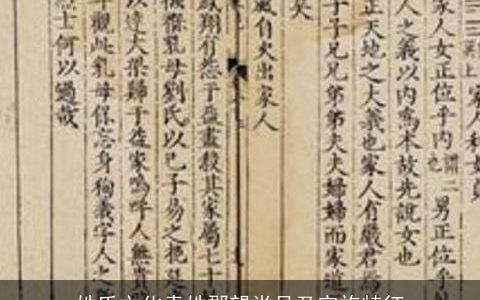 巽上 家人利女貞
家人女正位乎内 謂二也 男正位乎
人之義以内為本故先說女也
正天地之大義也家人有嚴君焉
子子兄兄弟弟夫夫婦婦而家道
矣
風自火出家人
鳳翔有怨于益盡殺其家屬七十
乳母劉氏以己子易之抱延
以達大梁歸于益家嗚呼人無貴
觀此乳母保忘身徇義字人之
士何以過哉